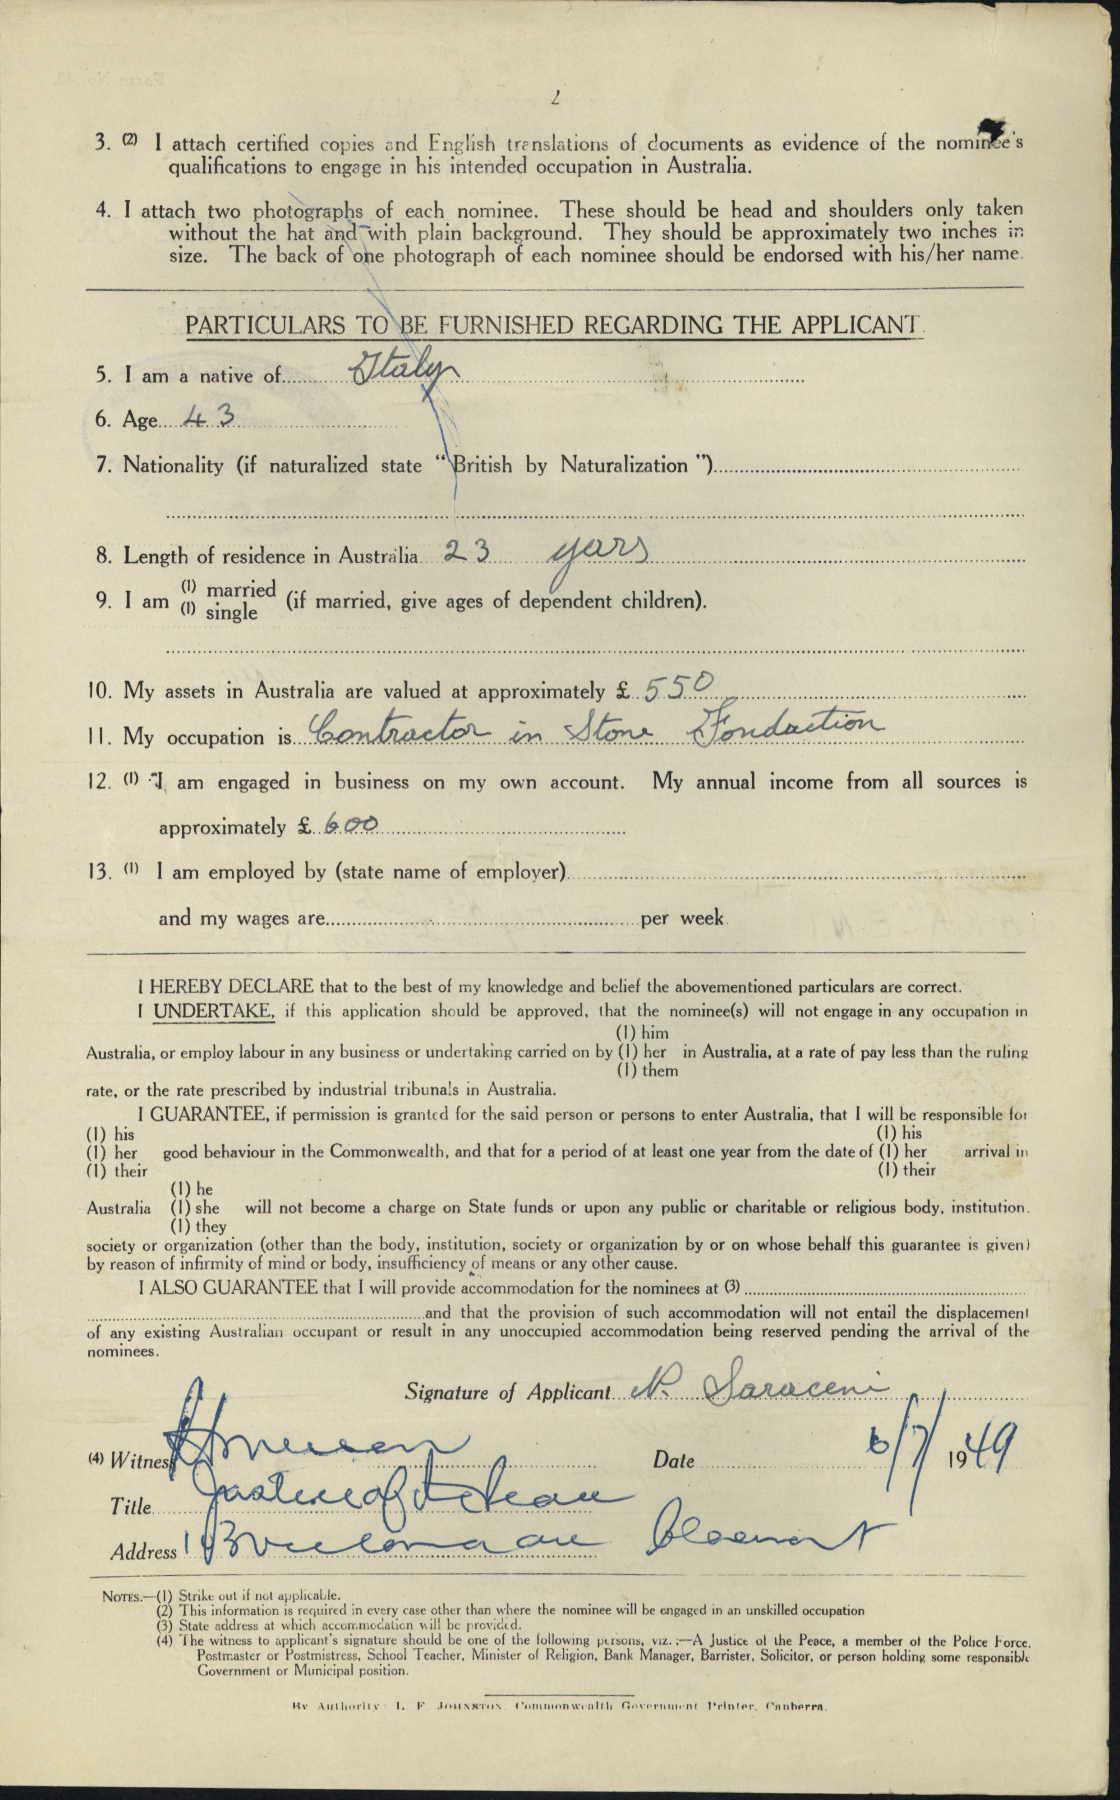 2
3. (2) I attach certified copies and English translations of documents as evidence of the nominee's
qualifications to engage in his intended occupation in Australia.
4. I attach two photographs of each nominee. These should be head and shoulders only taken
without the hat and with plain background. They should be approximately two inches in
size. The back of one photograph of each nominee should be endorsed with his/her name.
PARTICULARS TO BE FURNISHED REGARDING THE APPLICANT.
5. I am a native of Italy
6. Age 43
7. Nationality (if naturalized state "British by Naturalization")
8. Length of residence in Australia 23 yars
9. I am (1) married
(1) single (if married, give ages of dependent children).
10. My assets in Australia are valued at approximately £ 550
11. My occupation is Contractor in Stone Fondaction
12. (1) I am engaged in business on my own account. My annual income from all sources is
approximately £ 600
13. (1) I am employed by (state name of employer)
and my wages are per week.
I HEREBY DECLARE that to the best of my knowledge and belief the abovementioned particulars are correct.
I UNDERTAKE, if this application should be approved, that the nominee(s) will not engage in any occupation in
(1) him
Australia, or employ labour in any business or undertaking carried on by (1) her in Australia, at a rate of pay less than the ruling
(1) them
rate, or the rate prescribed by industrial tribunals in Australia.
I GUARANTEE, if permission is granted for the said person or persons to enter Australia, that I will be responsible for
(1) his (1) his
(1) her good behaviour in the Commonwealth, and that for a period of at least one year from the date of (1) her arrival in
(1) their (1) their
(1) he
Australia (1) she will not become a charge on State funds or upon any public or charitable or religious body, institution,
(1) they
society or organization (other than the body, institution, society or organization by or on whose behalf this guarantee is given)
by reason of infirmity of mind or body, insufficiency of means or any other cause.
I ALSO GUARANTEE that I will provide accommodation for the nominees at (3)
and that the provision of such accommodation will not entail the displacement
of any existing Australian occupant or result in any unoccupied accommodation being reserved pending the arrival of the
nominees.
Signature of Applicant N. Saraceni
(4) Witness Date 6/7/1949
Title Justice of the Peace
Address Victoria ave Claremont
NOTES.—(1) Strike out if not applicable.
(2) This information is required in every case other than where the nominee will be engaged in an unskilled occupation
(3) State address at which accommodation will be provided.
(4) The witness to applicant's signature should be one of the following persons, viz.:—A Justice of the Peace, a member of the Police Force,
Postmaster or Postmistress, School Teacher, Minister of Religion, Bank Manager, Barrister, Solicitor, or person holding some responsible
Government or Municipal position.
By Authority: L. F. JOHNSTON, Commonwealth Government Printer, Canberra.